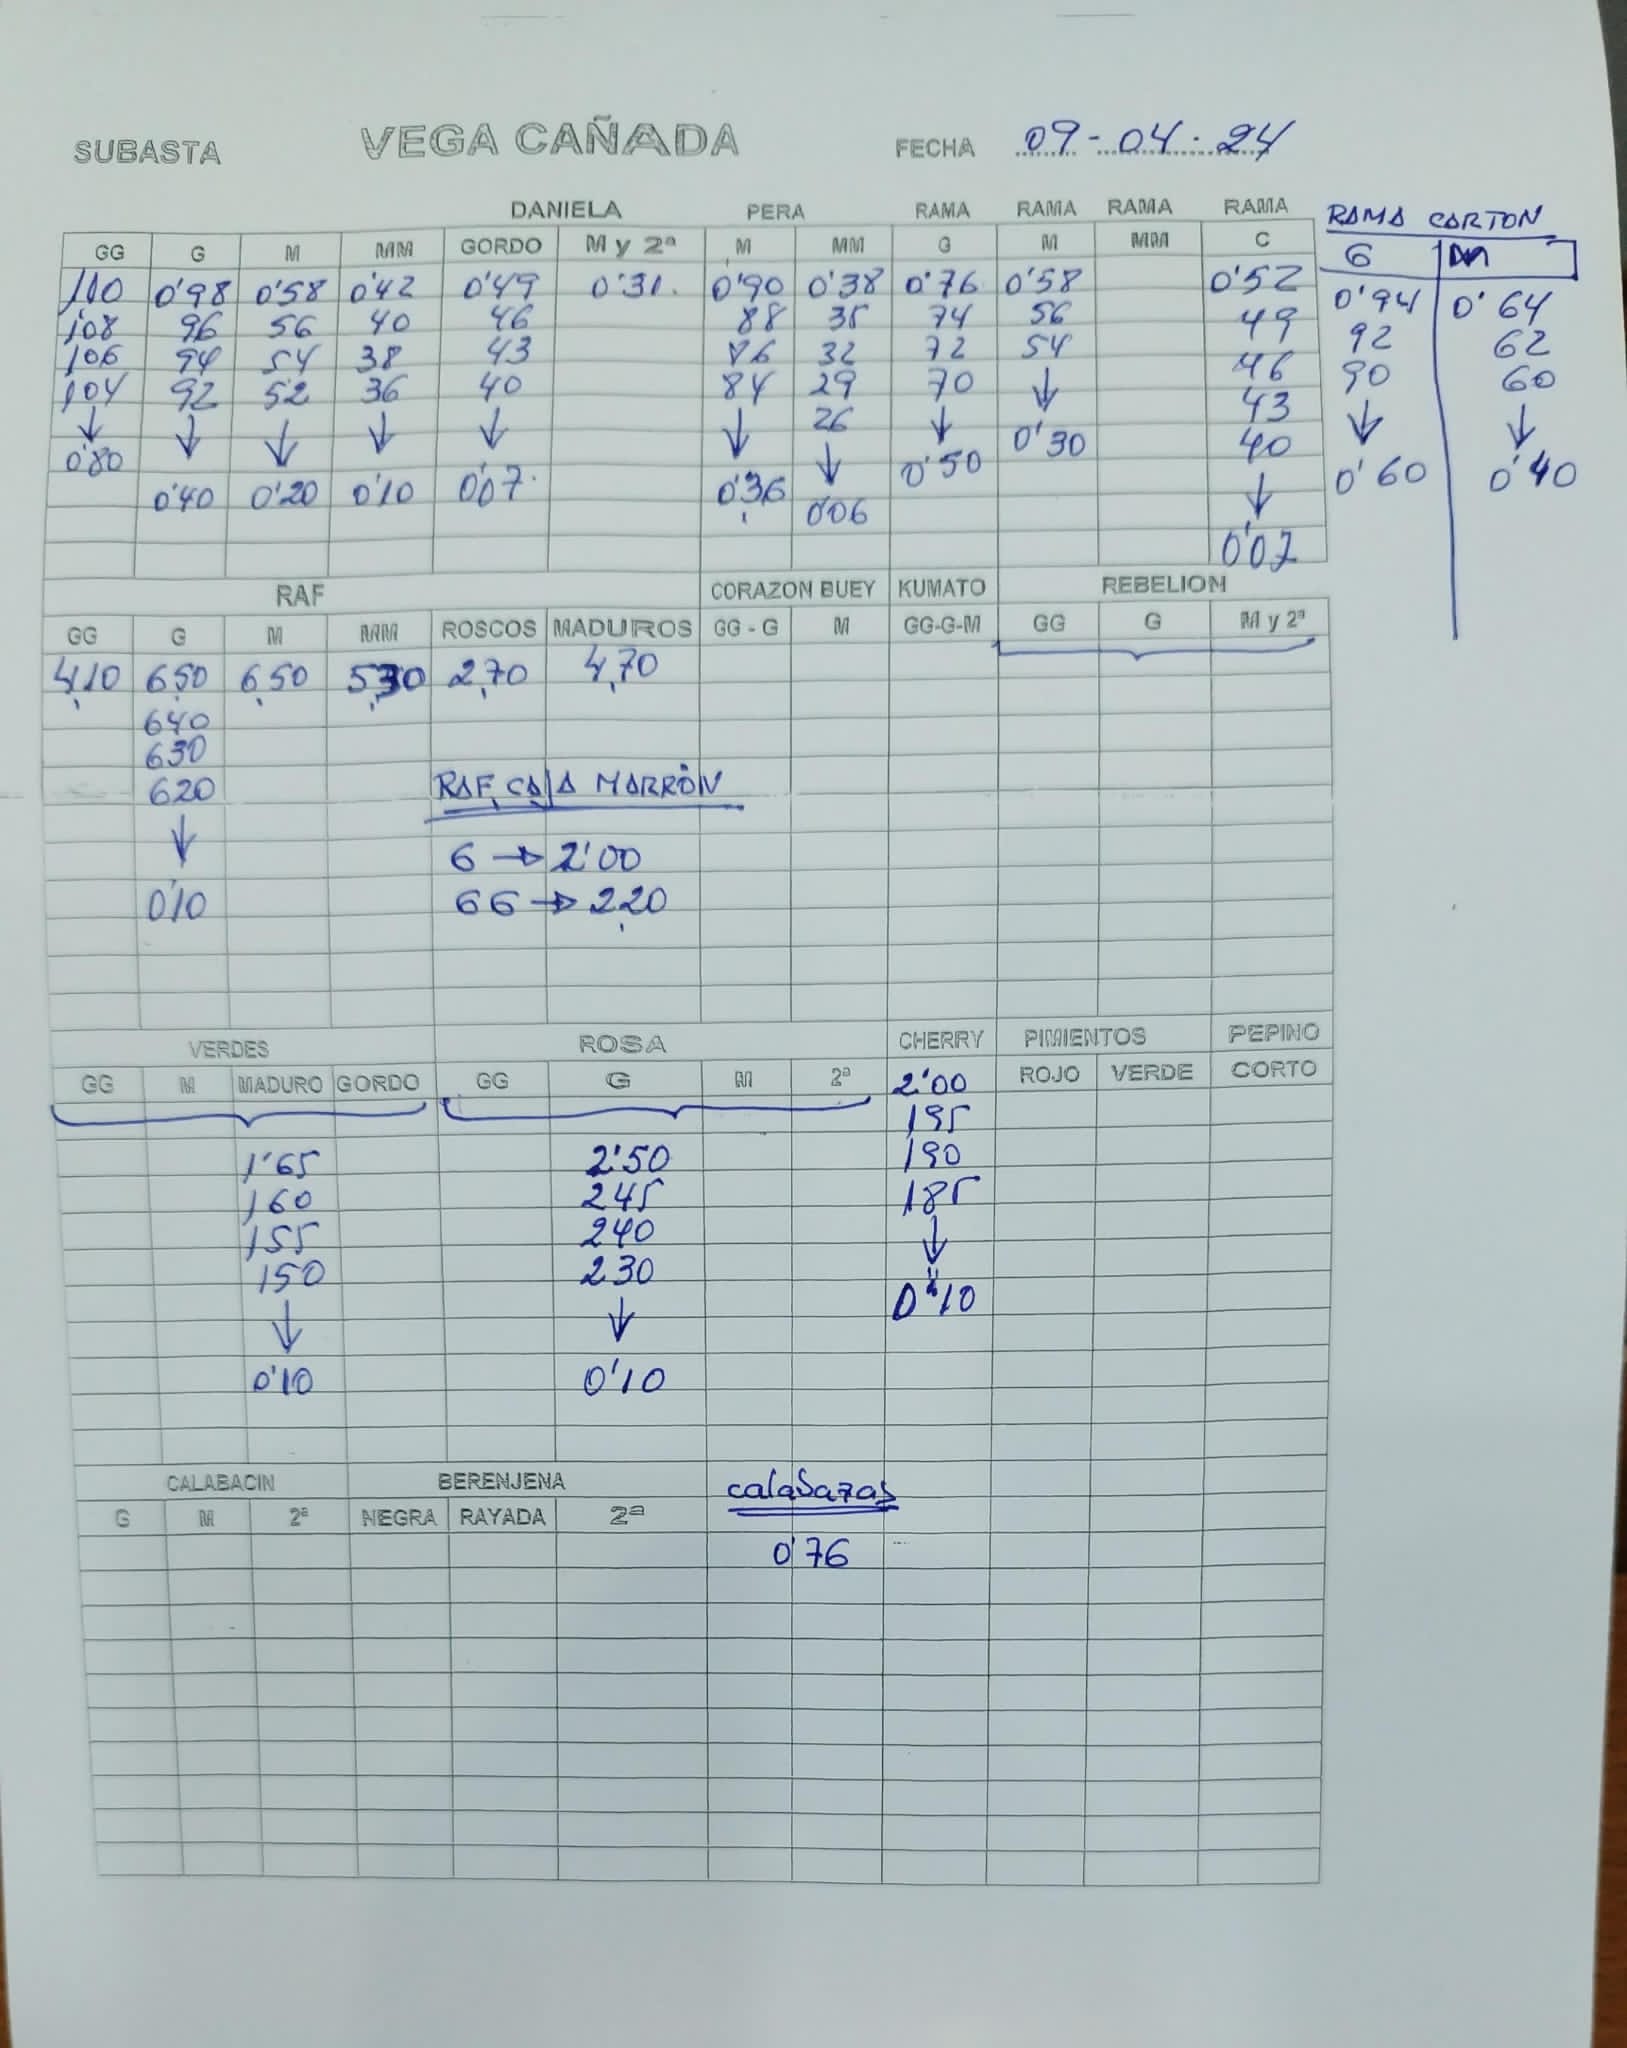 SUBASTA VEGA CAÑADA FECHA 09-04-24
DANIELA PERA RAMA RAMA RAMA RAMA RAMA CARTON
GG G M MM GORDO M y 2ª M MM G M MM C G M
110 0'98 0'58 0'42 0'49 0'31. 0'90 0'38 0'76 0'58 0'52 0'94 0'64
108 96 56 40 46 88 35 74 56 49 92 62
106 94 54 38 43 86 32 72 54 46 90 60
104 92 52 36 40 84 29 70 ↓ 43 ↓ ↓
↓ ↓ ↓ ↓ ↓ ↓ 26 ↓ 0'30 40 0'60 0'40
0'80 0'40 0'20 0'10 0'07. 0'36 ↓ 0'50 ↓
0'06 0'07
RAF CORAZON BUEY KUMATO REBELION
GG G M MM ROSCOS MADUROS GG - G M GG-G-M GG G M y 2ª
4,10 6,50 6,50 5,30 2,70 4,70
640
630
620 RAF CAJA MARRÓN
↓ G → 2'00
0'10 GG → 2,20
VERDES ROSA CHERRY PIMIENTOS PEPINO
GG M MADURO GORDO GG G M 2ª 2'00 ROJO VERDE CORTO
195
1'65 2'50 190
160 245 185
155 240 ↓
150 230 0'10
↓ ↓
0'10 0'10
CALABACIN BERENJENA calabazas
G M 2ª NEGRA RAYADA 2ª
0'76